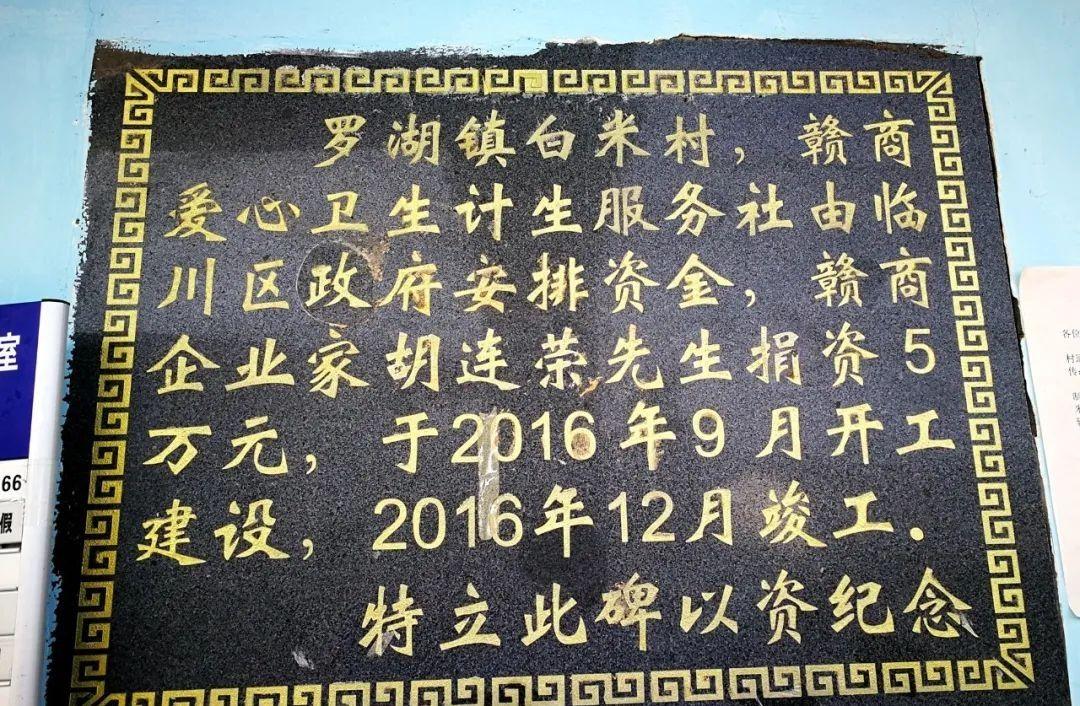 罗湖镇白米村，赣商
爱心卫生计生服务社由临
川区政府安排资金，赣商
企业家胡连荣先生捐资5
万元，于2016年9月开工
建设，2016年12月竣工.
特立此碑以资纪念
室
66
假
各位
村